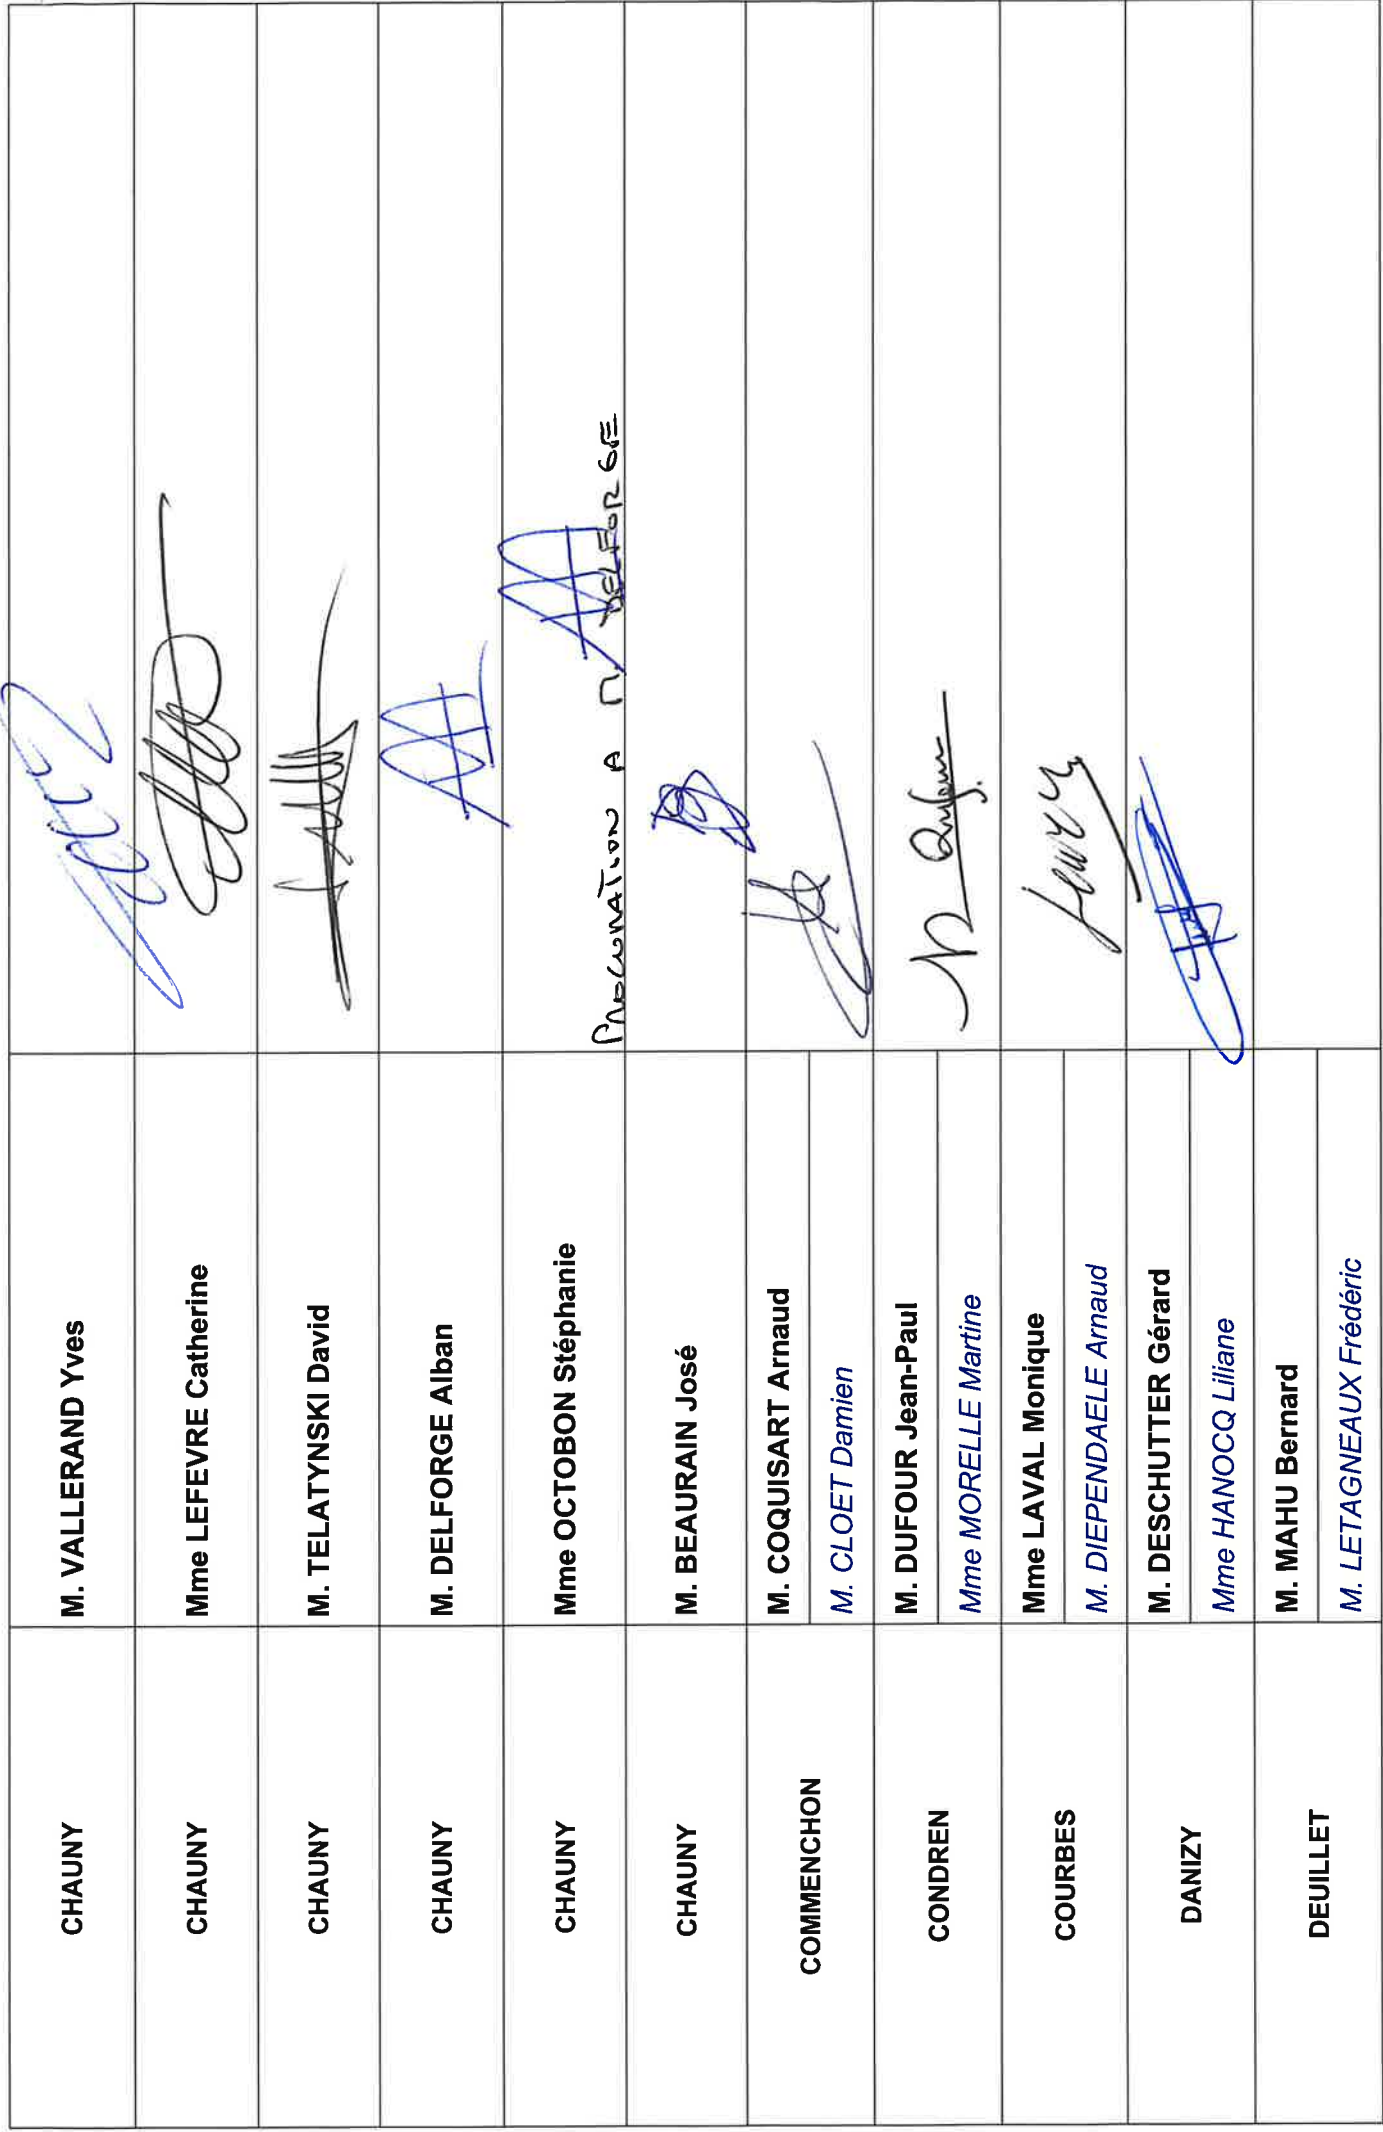 CHAUNY
M. VALLERAND Yves
CHAUNY
Mme LEFEVRE Catherine
CHAUNY
M. TELATYNSKI David
CHAUNY
M. DELFORGE Alban
CHAUNY
Mme OCTOBON Stéphanie
PROCURATION A M. DELFORGE
CHAUNY
M. BEAURAIN José
COMMENCHON
M. COQUISART Arnaud
M. CLOET Damien
CONDREN
M. DUFOUR Jean-Paul
Mme MORELLE Martine
COURBES
Mme LAVAL Monique
M. DIEPENDAELE Arnaud
DANIZY
M. DESCHUTTER Gérard
Mme HANOCQ Liliane
DEUILLET
M. MAHU Bernard
M. LETAGNEAUX Frédéric